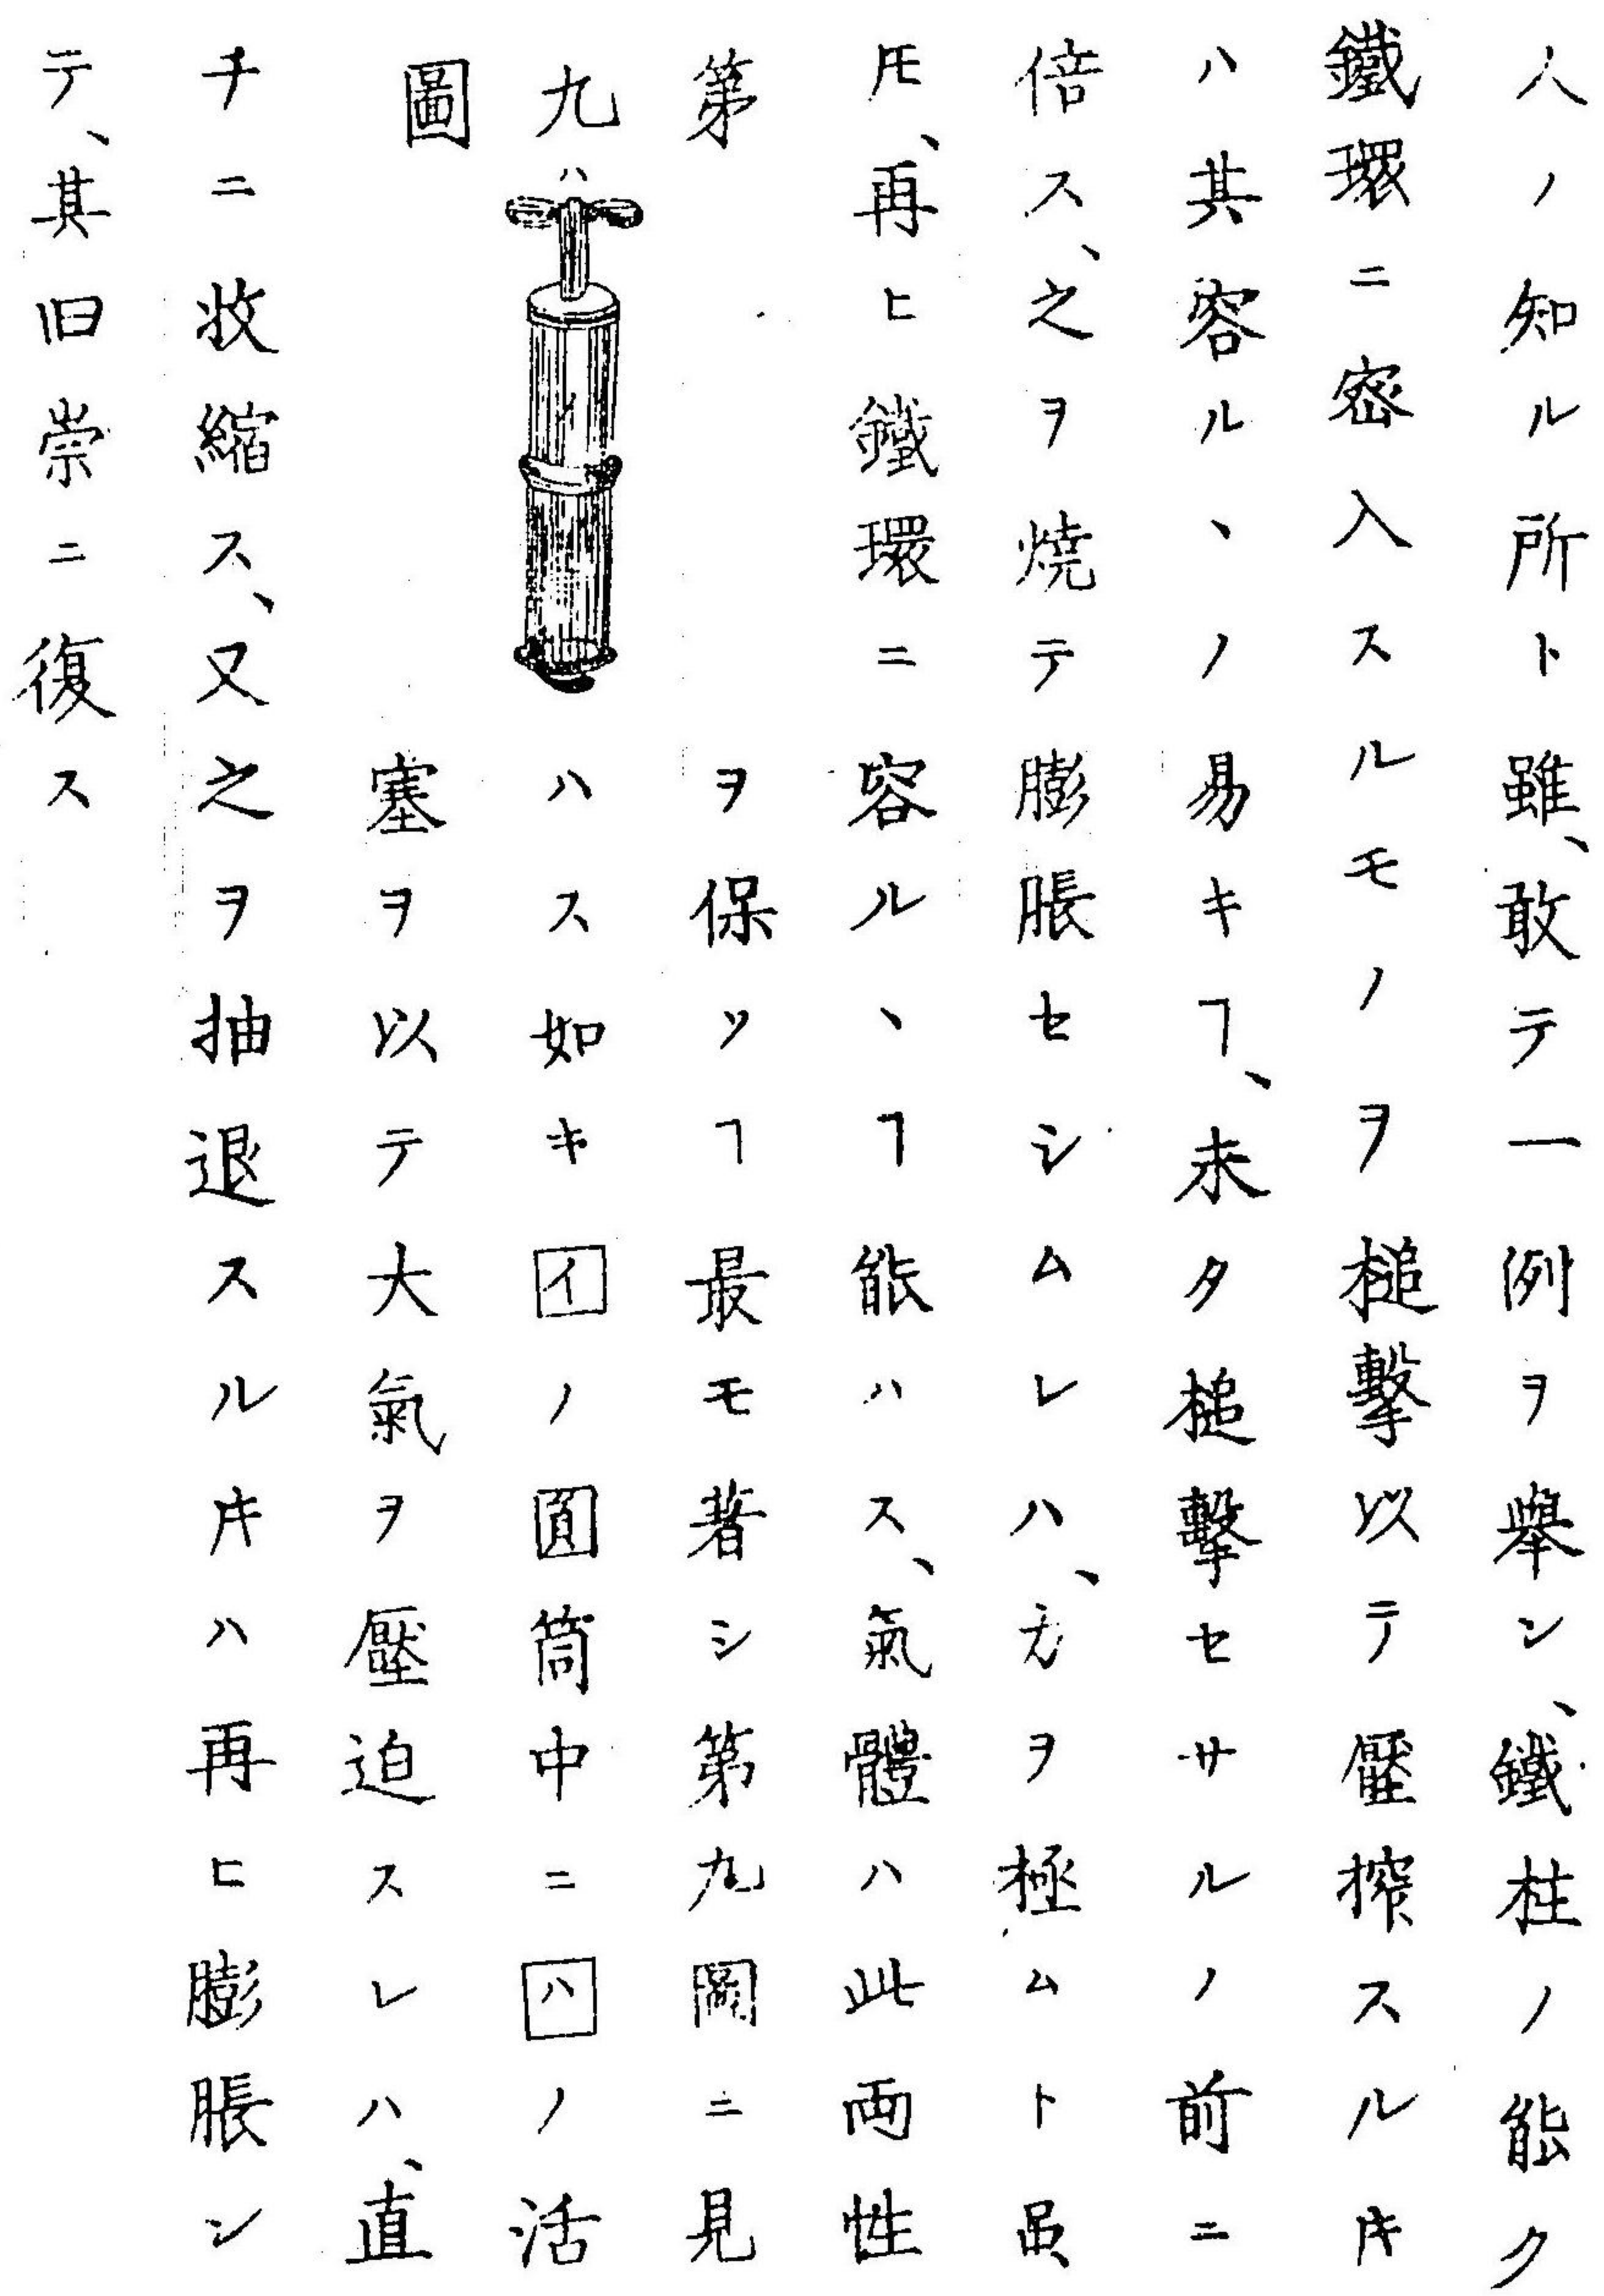 人ノ知ル所ト雖、敢テ一例ヲ擧ン、鐵柱ノ能ク
鐵環ニ密入スルモノヲ槌擊以テ壓搾スルꁈ
ハ其容ルヽノ易キヿ、未タ槌擊セサルノ前ニ
倍ス、之ヲ燒テ膨脹セシムレハ、力ヲ極ムト虽
𪜈、再ヒ鐵環ニ容ルヽヿ能ハス、氣體ハ此両性
ヲ保ツヿ最モ著シ第九圖ニ見
ハス如キイノ圓筒中ニハノ活
塞ヲ以テ大氣ヲ壓迫スレハ、直
チニ收縮ス、又之ヲ抽退スルꁈハ再ヒ膨脹シ
テ、其旧崇ニ復ス
第九圖
ハ
イ